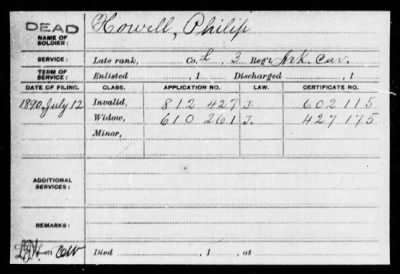 DEAD
NAME OF SOLDIER: Howell, Philip
SERVICE: Late rank, Co. L, 3 Reg't Ark. Cav.
TERM OF SERVICE: Enlisted , 1 Discharged , 1
DATE OF FILING. CLASS. APPLICATION NO. LAW. CERTIFICATE NO.
1890, July 12 Invalid, 812 427 J. 602 115
Widow, 610 261 J. 427 175
Minor,
ADDITIONAL SERVICES:
REMARKS:
Died , 1 , at